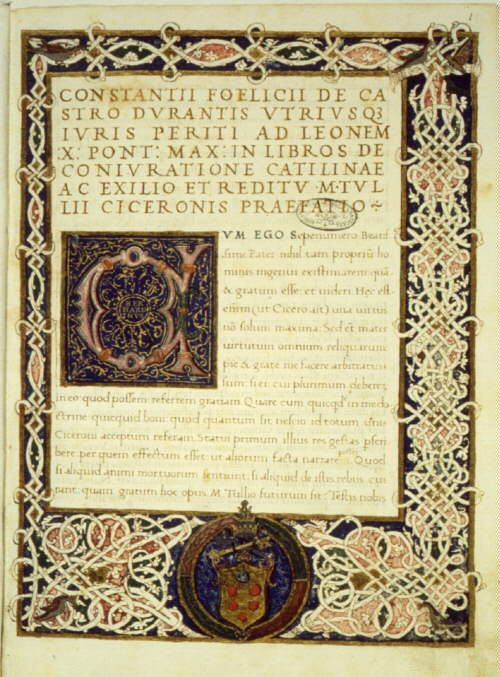 CONSTANTII FOELICII DE CA
STRO DVRANTIS VTRIVSQ3
IVRIS PERITI AD LEONEM
:X: PONT: MAX: IN LIBROS DE
CONIVRATIONE CATILINAE
AC EXILIO ET REDITV M·TVL
LII CICERONIS PRAEFATIO
VM EGO Sepenumero Beatis
sime Pater nihil tam proprium ho
minis ingenui existimarem: quã
& gratum esse: et videri. Hec est
enim (ut Cicero ait) una virtus
nõ solum maxima: Sed et mater
virtutum omnium reliquarum
pie & grate me facere arbitratus
sum: si ei: cui plurimum deberem
in eo quod possem: referrem gratiam. Quare cum quicqd in me do
ctrine quicquid boni quod quantum sit nescio id totum
Ciceroni acceptum referam. Statui primum illius res gestas
bere per quem effectum esset: ut aliorum facta narrare Quod
si aliquid animi mortuorum sentiunt: si aliquid de istis rebus cu
rant: quam gratum hoc opus M. Tullio futurum sit: Testis nobis